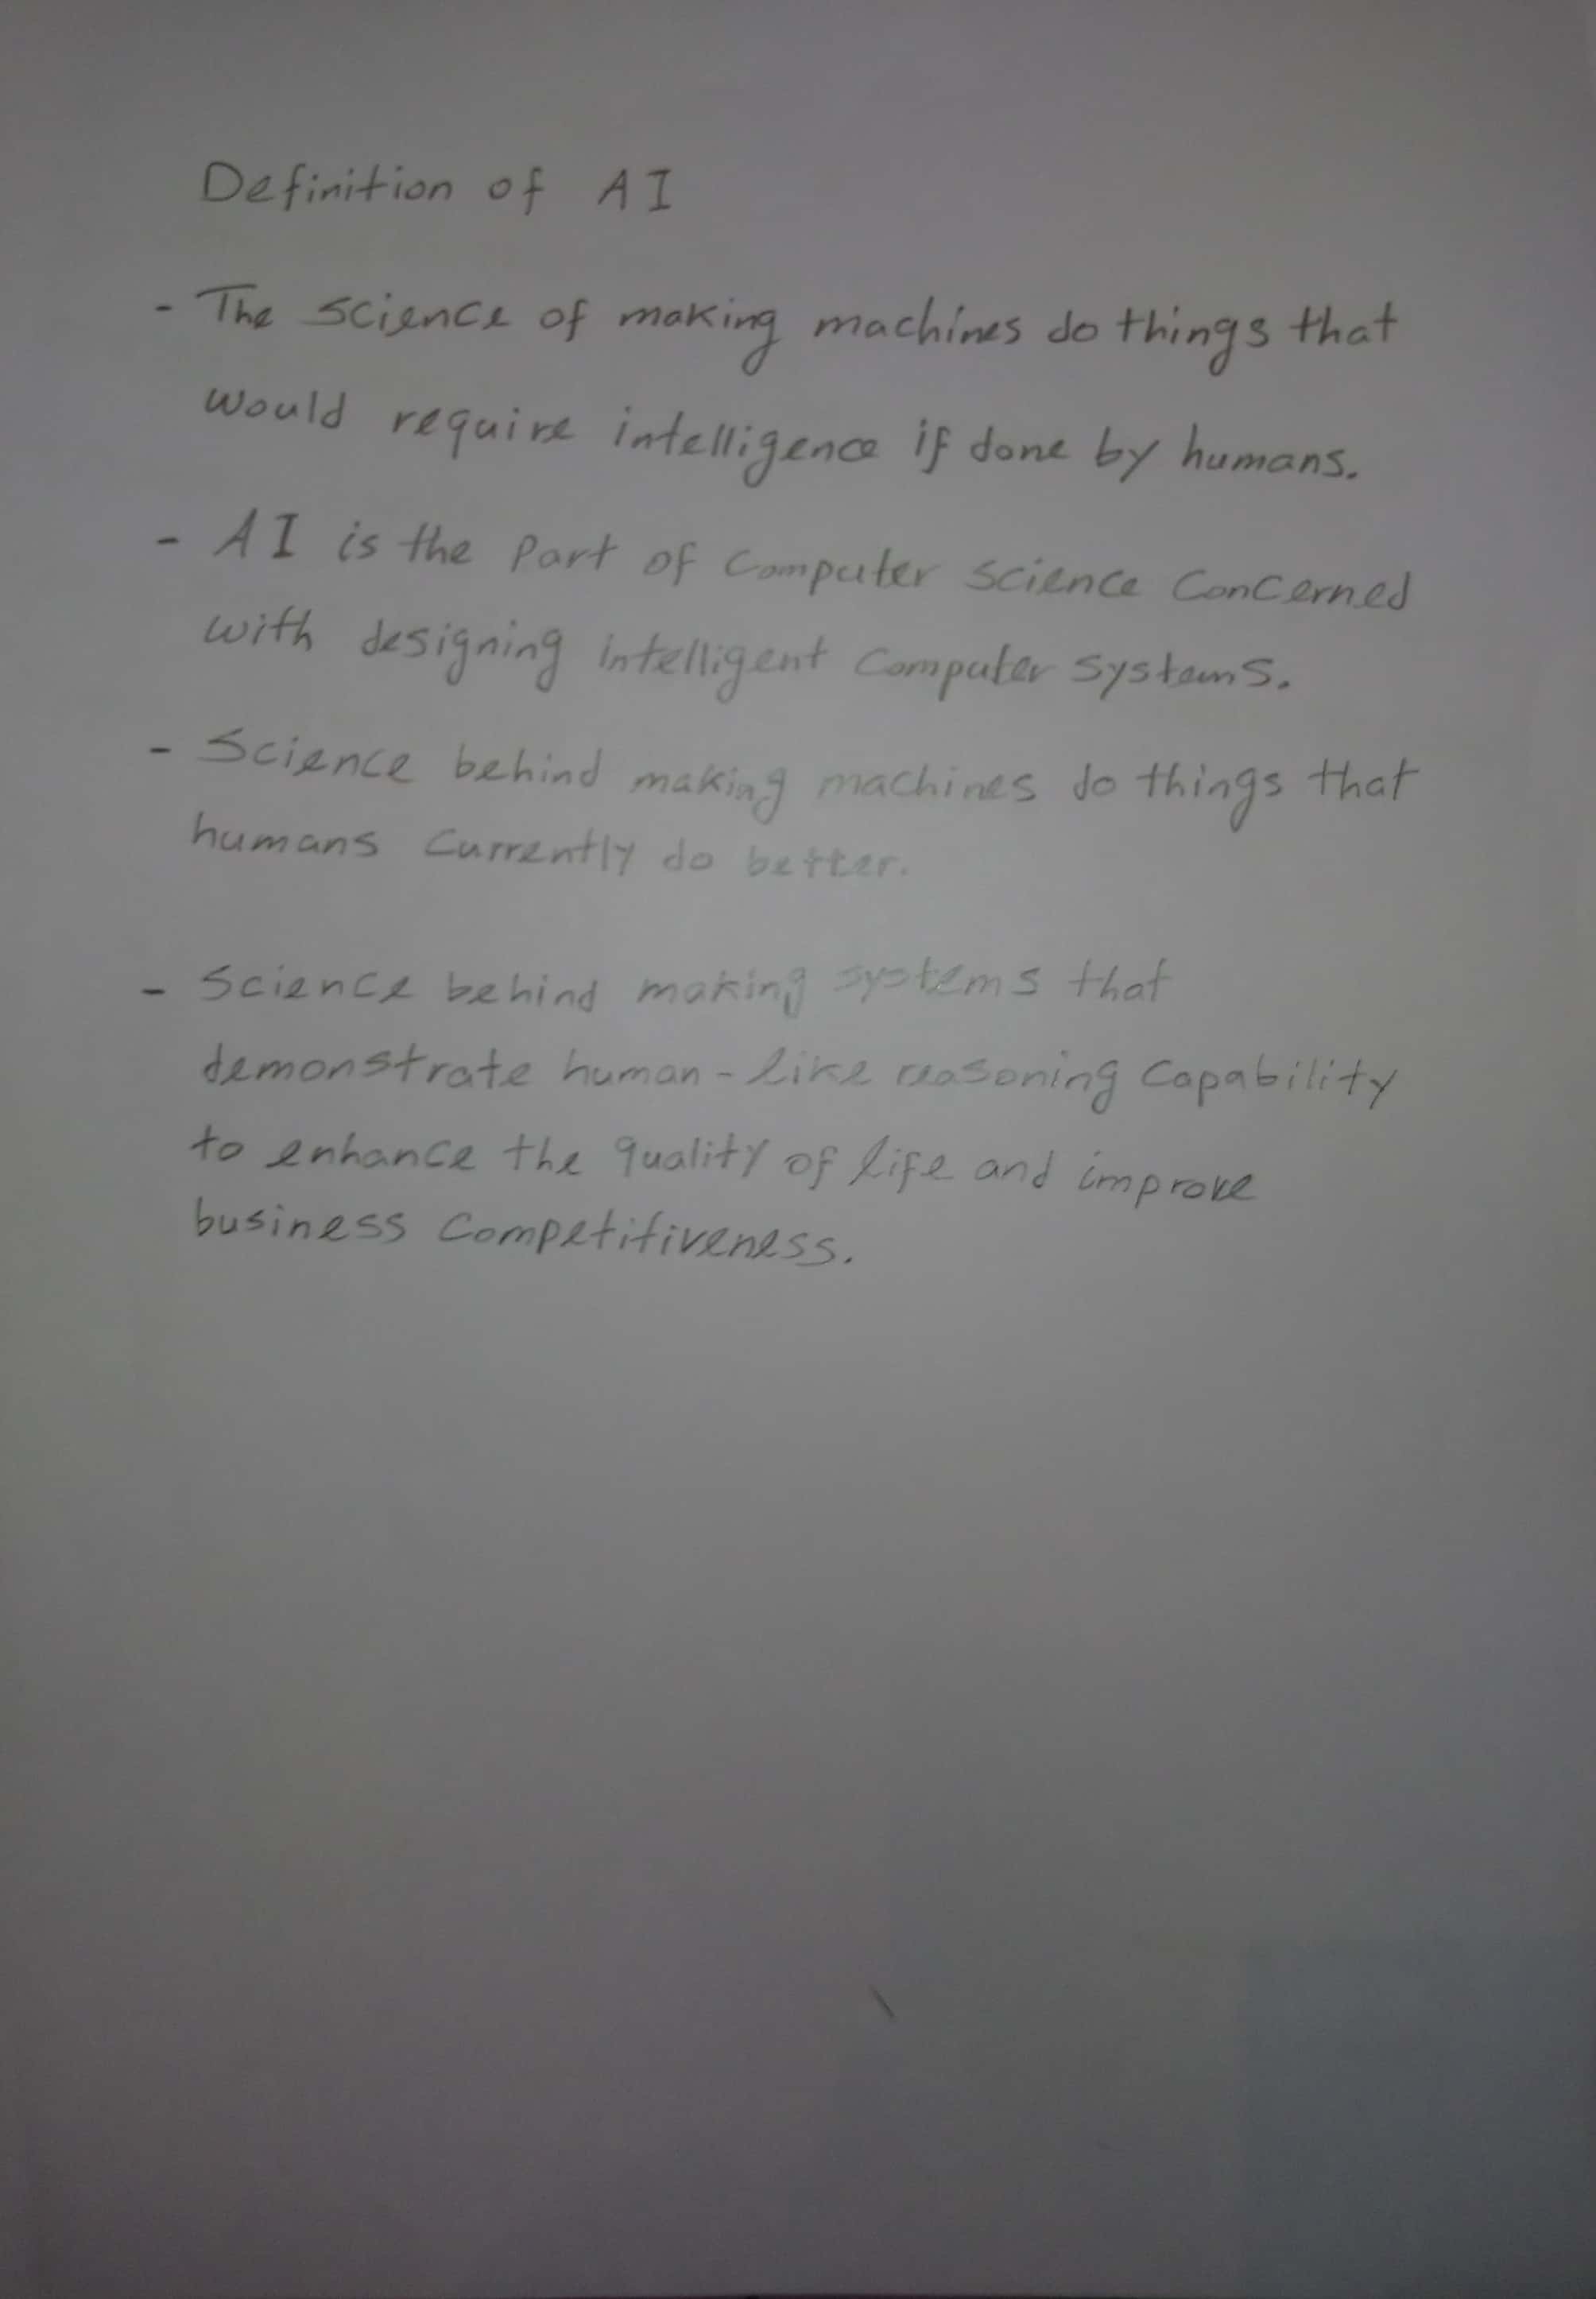 Definition of AI
- The science of making machines do things that
would require intelligence if done by humans.
- AI is the part of computer science concerned
with designing intelligent computer systems.
- Science behind making machines do things that
humans currently do better.
- Science behind making systems that
demonstrate human-like reasoning capability
to enhance the quality of life and improve
business competitiveness.